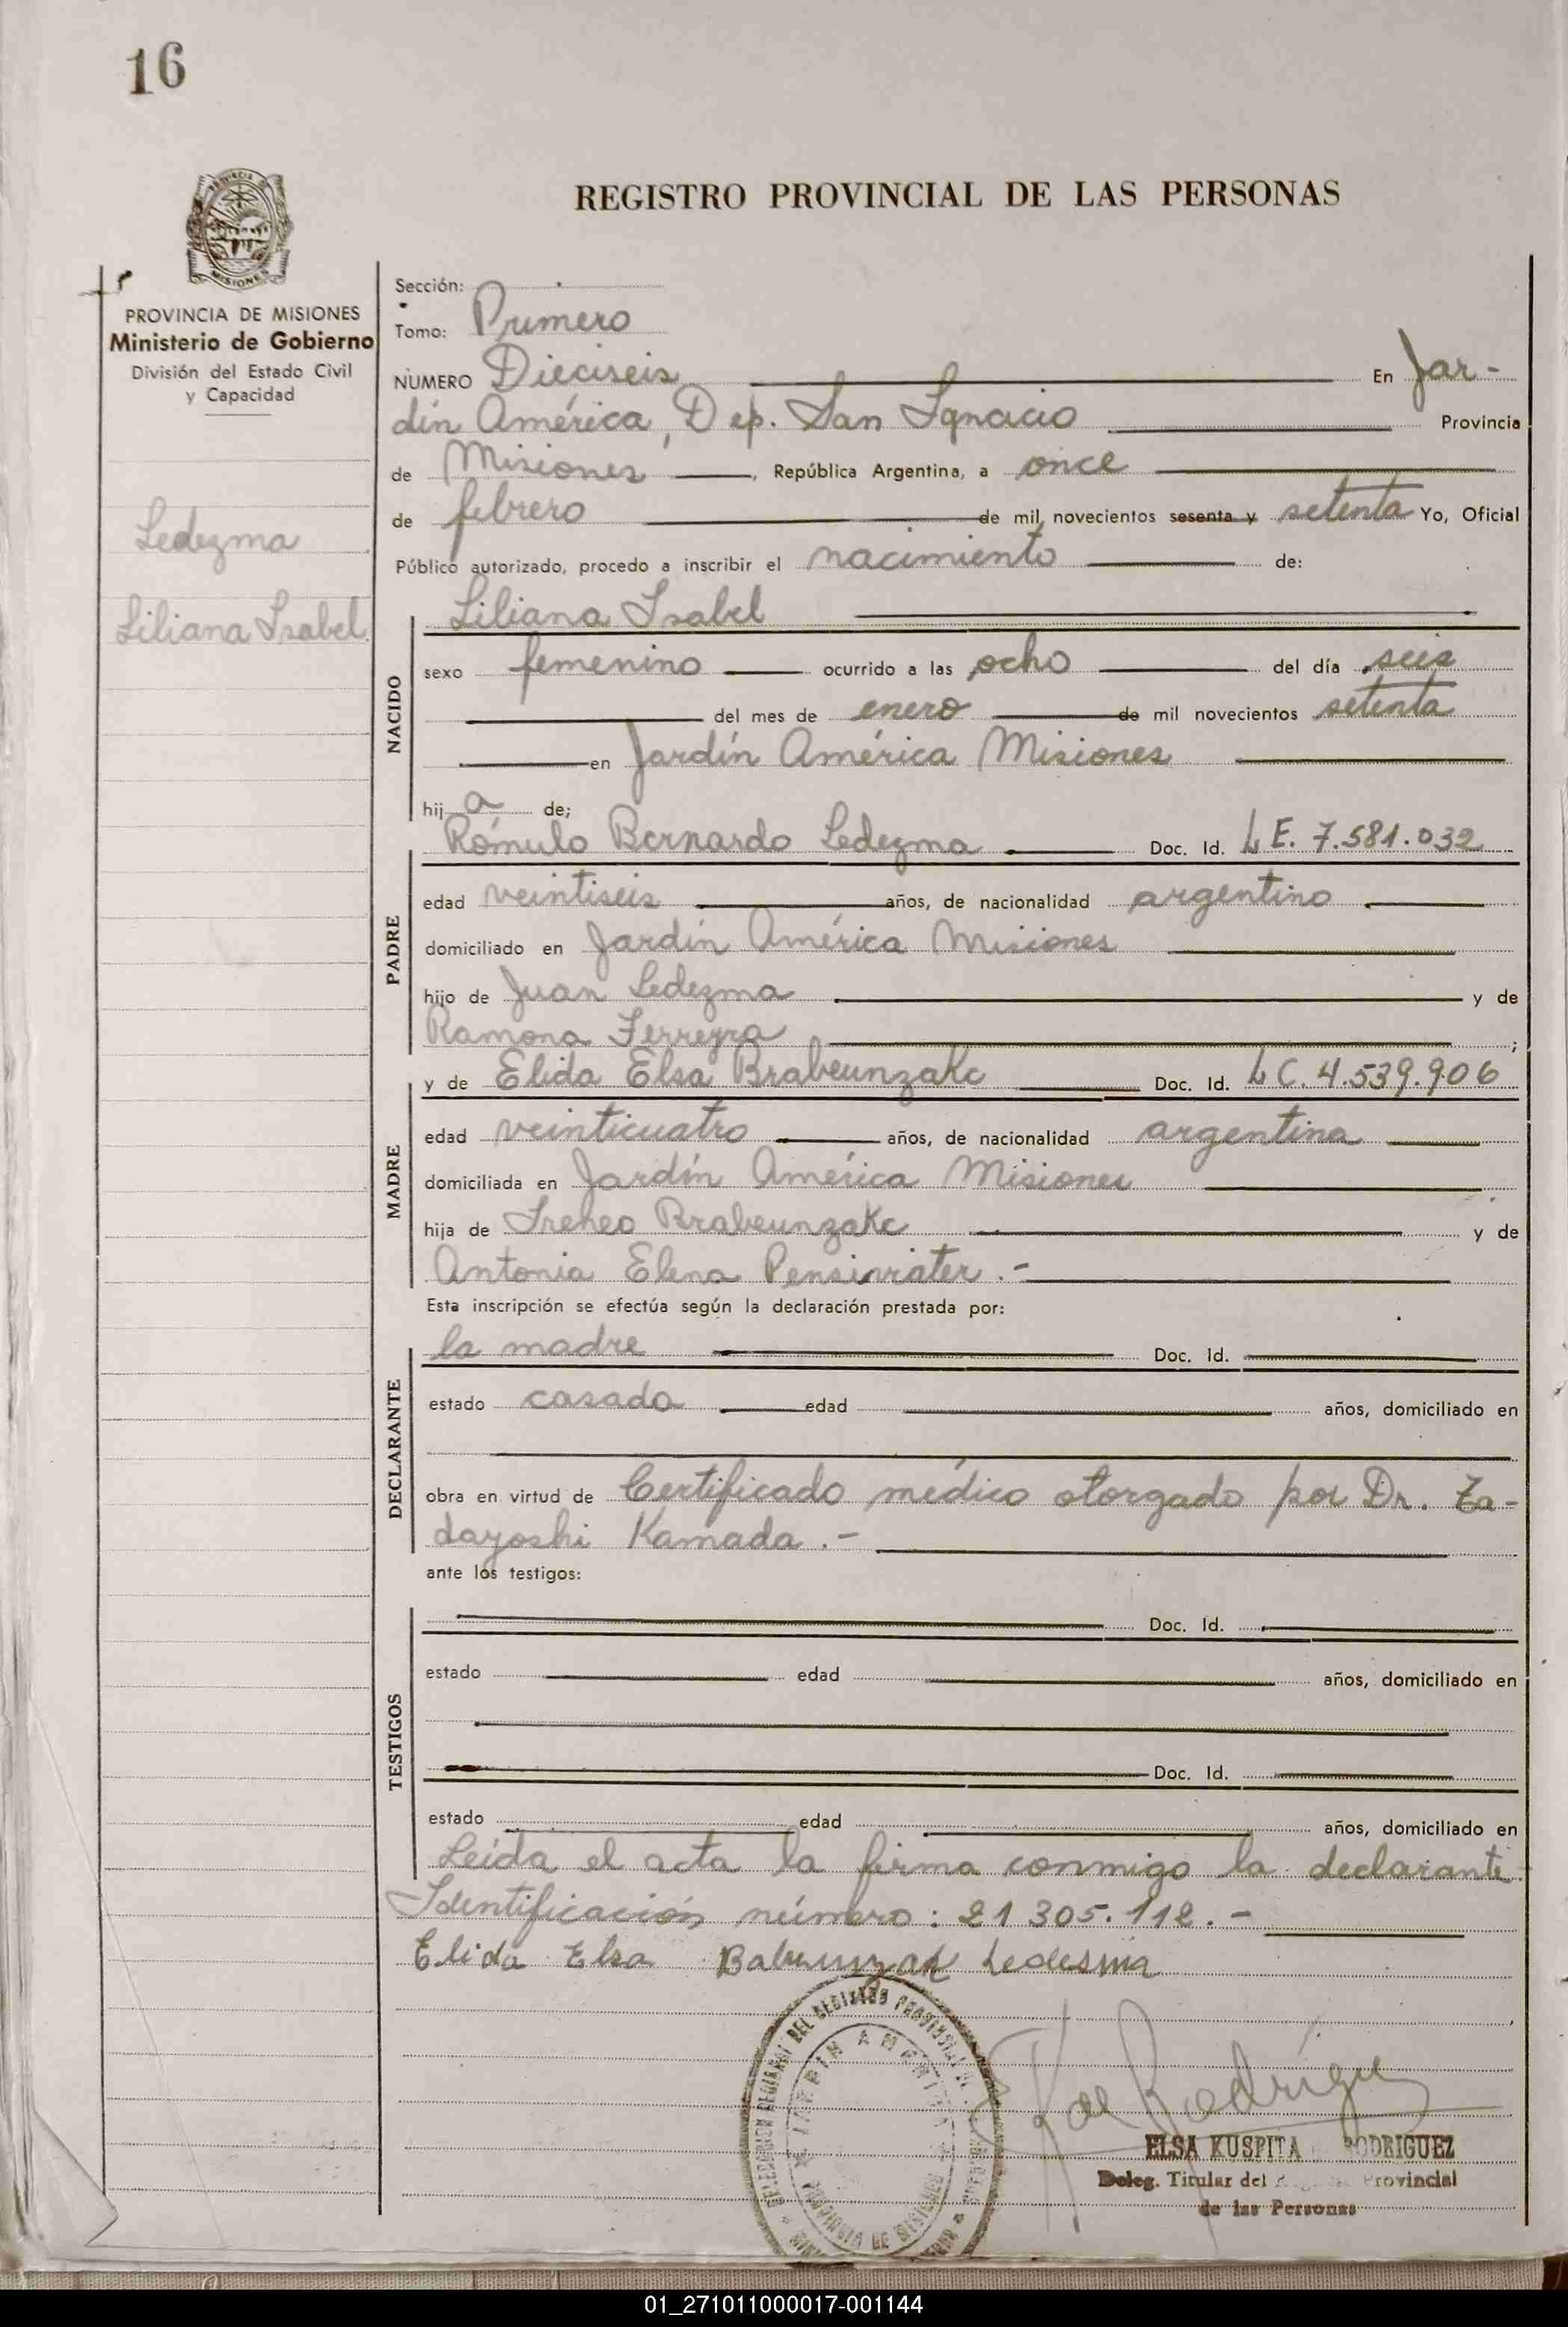 16
REGISTRO PROVINCIAL DE LAS PERSONAS
PROVINCIA DE
MISIONES
PROVINCIA DE MISIONES
Ministerio de Gobierno
División del Estado Civil
y Capacidad
Ledezma
Liliana Isabel
Sección:
Tomo: Primero
NUMERO Dieciseis En Jar-
dín América, Dep. San Ignacio Provincia
de Misiones, República Argentina, a once
de febrero de mil novecientos sesenta y setenta Yo, Oficial
Público autorizado, procedo a inscribir el nacimiento de:
NACIDO
Liliana Isabel
sexo femenino ocurrido a las ocho del día seis
del mes de enero de mil novecientos setenta
en Jardín América Misiones
hij a de;
PADRE
Rómulo Bernardo Ledezma Doc. Id. L E. 7.581.032
edad veintiseis años, de nacionalidad argentino
domiciliado en Jardín América Misiones
hijo de Juan Ledezma y de
Ramona Ferreyra ;
MADRE
y de Elida Elsa Brabeunzakc Doc. Id. L C. 4.539.906
edad veinticuatro años, de nacionalidad argentina
domiciliada en Jardín América Misiones
hija de Ireneo Brabeunzakc y de
Antonia Elena .-
Esta inscripción se efectúa según la declaración prestada por:
DECLARANTE
la madre Doc. Id.
estado casada edad años, domiciliado en
obra en virtud de Certificado médico otorgado por Dr. Ta-
dayoshi Kamada .-
ante los testigos:
TESTIGOS
Doc. Id.
estado edad años, domiciliado en
Doc. Id.
estado edad años, domiciliado en
Leída el acta la firma conmigo la declarante
Identificación número: 21 305.112.-
Elida Elsa Ledesma
JARDIN AMERICA
PROVINCIA DE MISIONES
K de Rodríguez
ELSA KUSPITA RODRIGUEZ
Deleg. Titular del Provincial
de las Personas
01_271011000017-001144